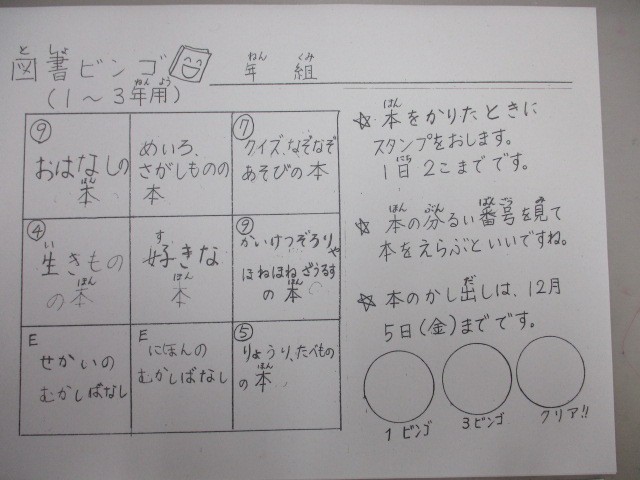 図書ビンゴ
としょ
年 組
ねん くみ
(1~3年用)
ねんよう
⑨
おはなしの
本
ほん
めいろ、
さがしものの
本
⑦
クイズ、なぞなぞ
あそびの本
④
生きもの
い
の本
ほん
好きな
す
本
ほん
⑨
かいけつゾロリや
ほねほねざうるす
の本
ほん
E
せかいの
むかしばなし
E
にほんの
むかしばなし
⑤
りょうり、たべもの
の本
ほん
☆ 本をかりたときに
ほん
スタンプをおします。
1日2こまでです。
にち
☆ 本の分るい番号を見て
ほん ぶん ばんごう み
本をえらぶといいですね。
☆ 本のかし出しは、12月
だ
5日(金)までです。
1ビンゴ
3ビンゴ
クリア!!